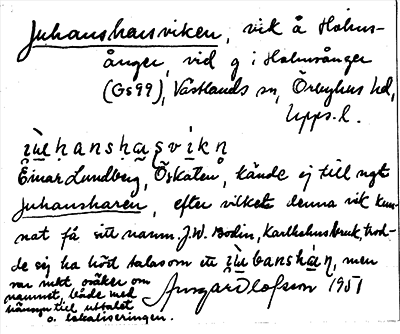 Juhansharsviken, vik å Holms-
ånger, vid g i Holmsånger
(Gs99), Västlands sn, Örbyhus hd,
Upps. l.
Einar Lundberg, Öskaten, kände ej till ngt
Juhansharen, efter vilket denna vik kun-
nat få sitt namn. J.W. Bodin, Karlholms bruk, trod-
de sig ha hört talas om ett, men
var rikt osäker om
namnet, både med
hänsyn till uttalet
o. lokaliseringen.
Ansgar Olofsson 1951